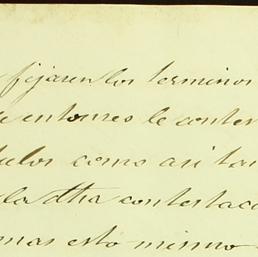 fijaren los terminos
entonces le conter
tulos como asi tan
la dha contestac
mas esto mismo